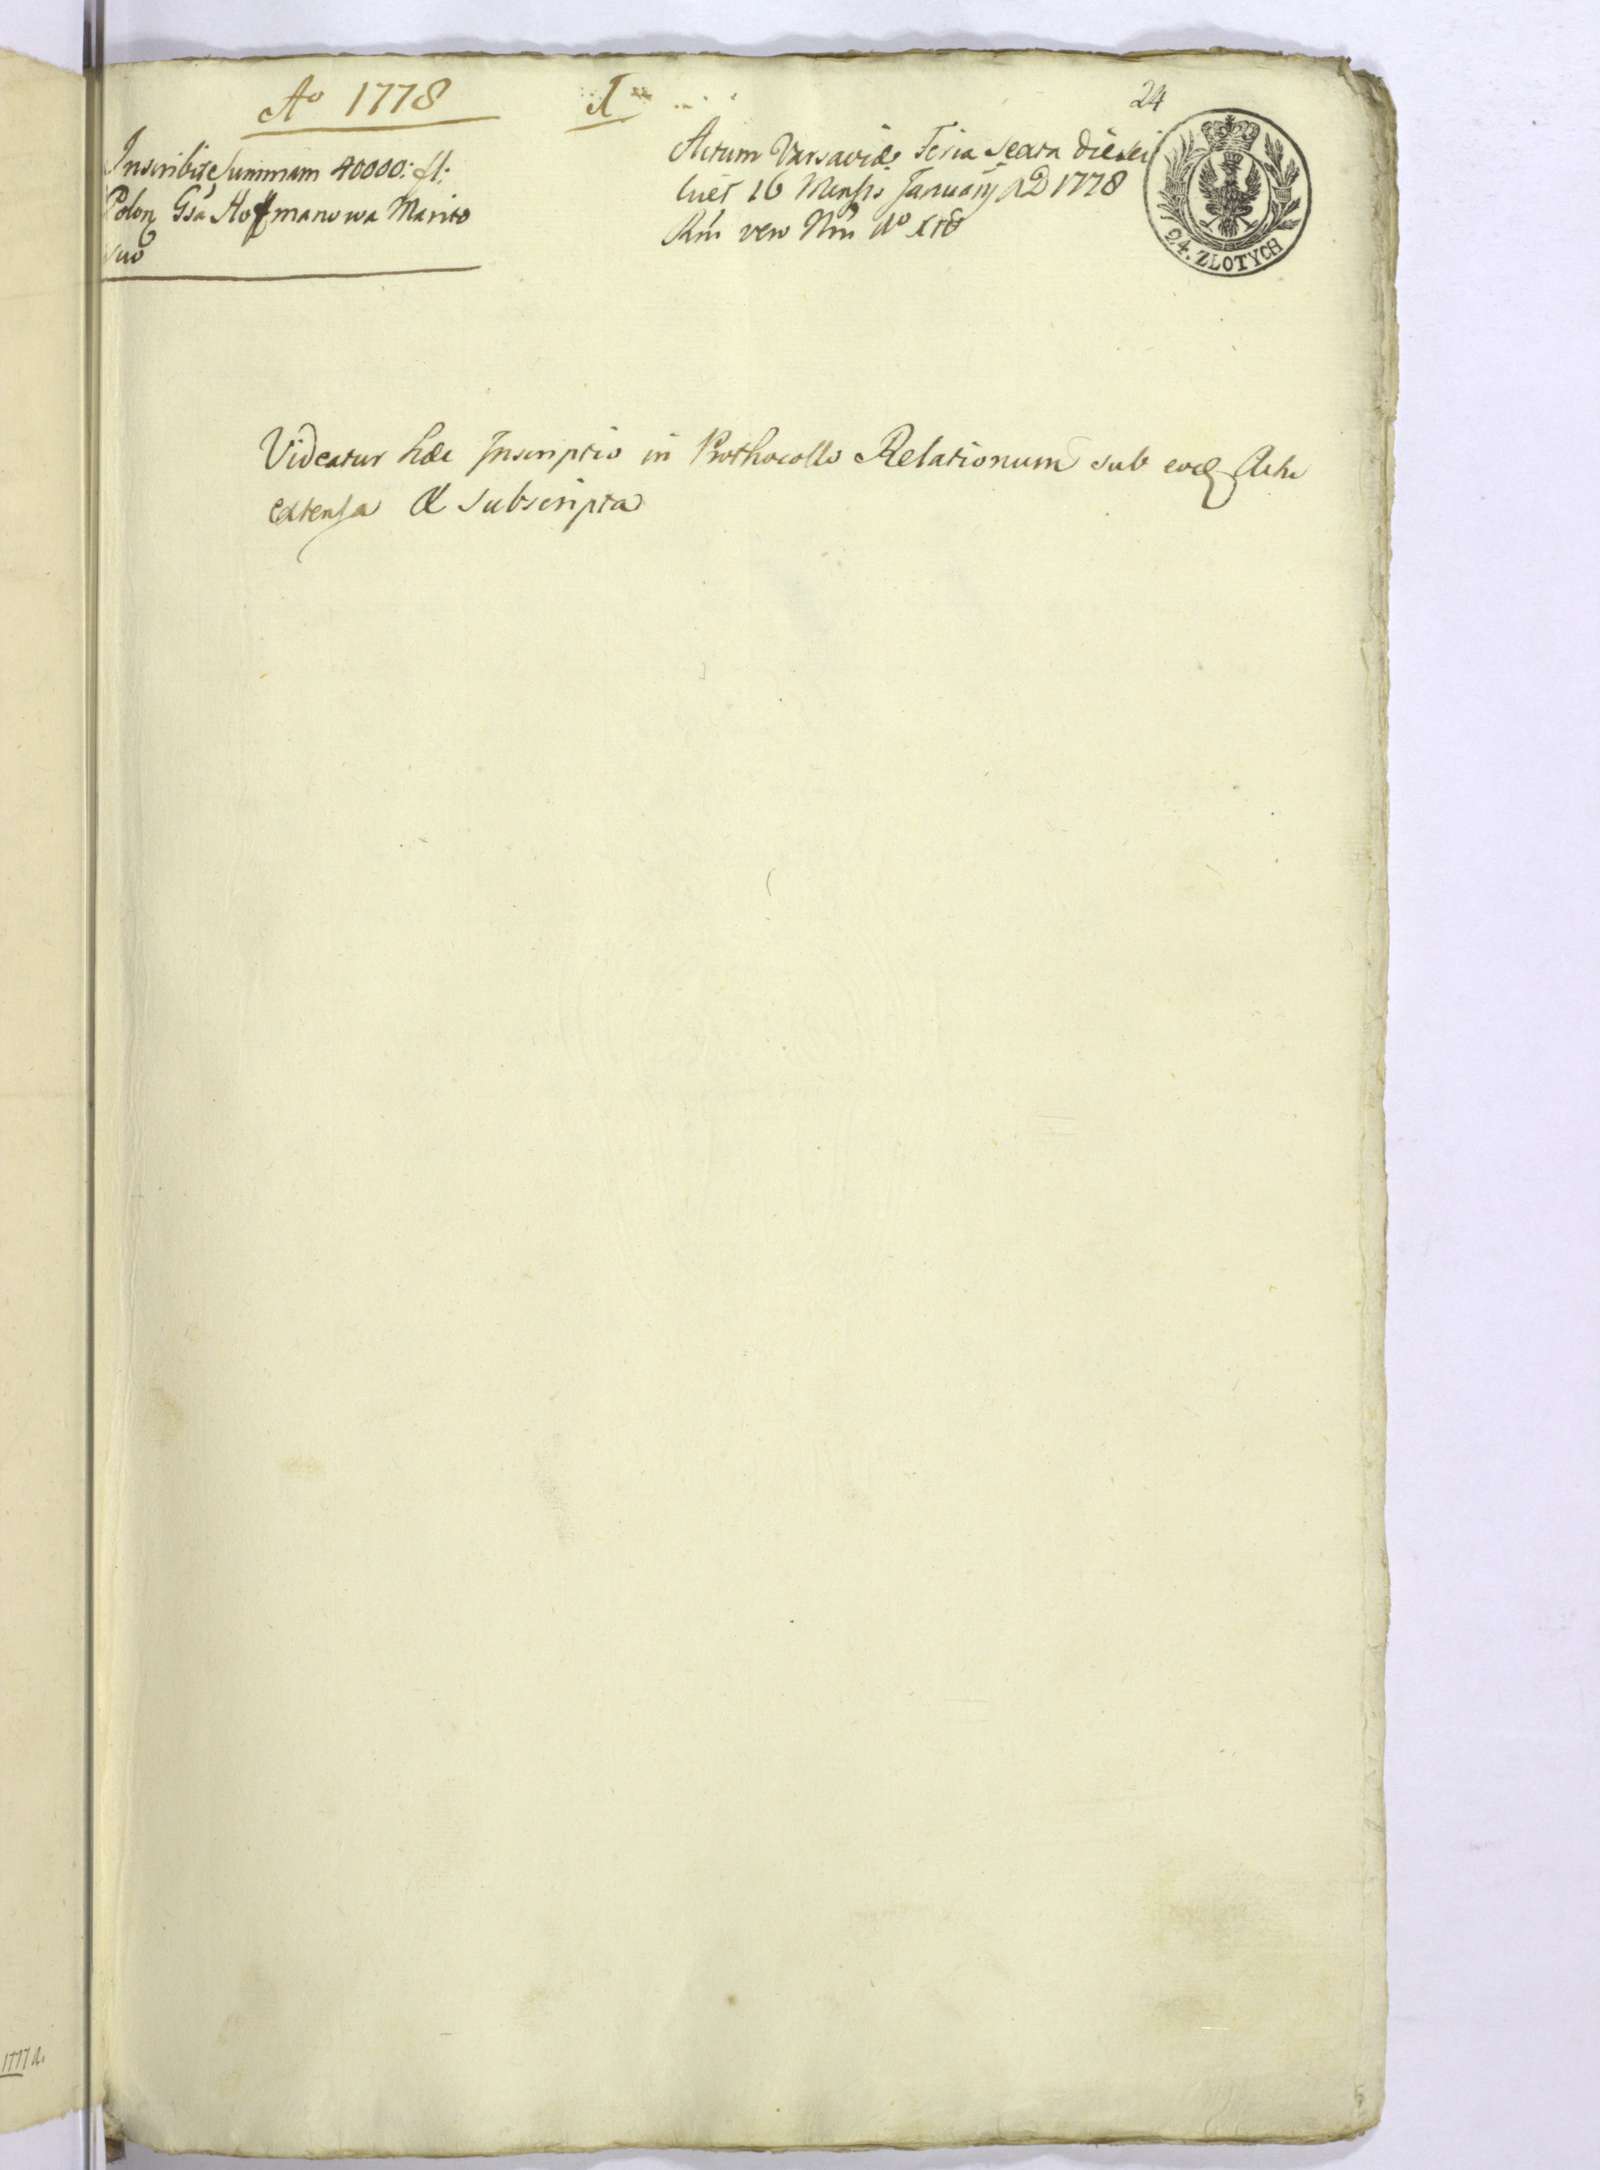 24
Ao 1778
I
Inscribit Summam 40000: fl:
Polon Gsa Hoffmanowa Marito
suo
Actum Varsaviæ Feria sexta die sci
licet 16 Mensis January AD 1778
Rni vero Nri Ao
24. ZLOTYCH
Videatur hæc Inscriptio in Prothocollo Relationum sub eod Actu
extensa & subscripta